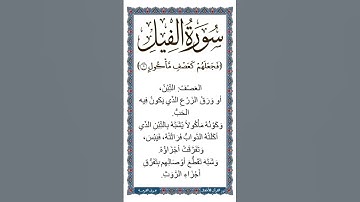 سُورَةُ الفِيلِ
﴿فَجَعَلَهُمْ كَعَصْفٍ مَّأْكُولٍ ۝﴾
العَصْفُ: التِّبْنُ،
أو وَرَقُ الزَّرْعِ الَّذِي يَكُونُ فِيهِ
الحَبُّ.
وَكَوْنُهُ مَأْكُولًا يُشْبَّهُ بِالتِّبْنِ الَّذِي
أَكَلَتْهُ الدَّوَابُّ فَرَاثَتْهُ، فَيَبِسَ،
وَتَفَرَّقَتْ أَجْزَاؤُهُ.
وَشُبِّهَ تَقَطُّعُ أَوْصَالِهِم بِتَفَرُّقِ
أَجْزَاءِ الرَّوَثِ.